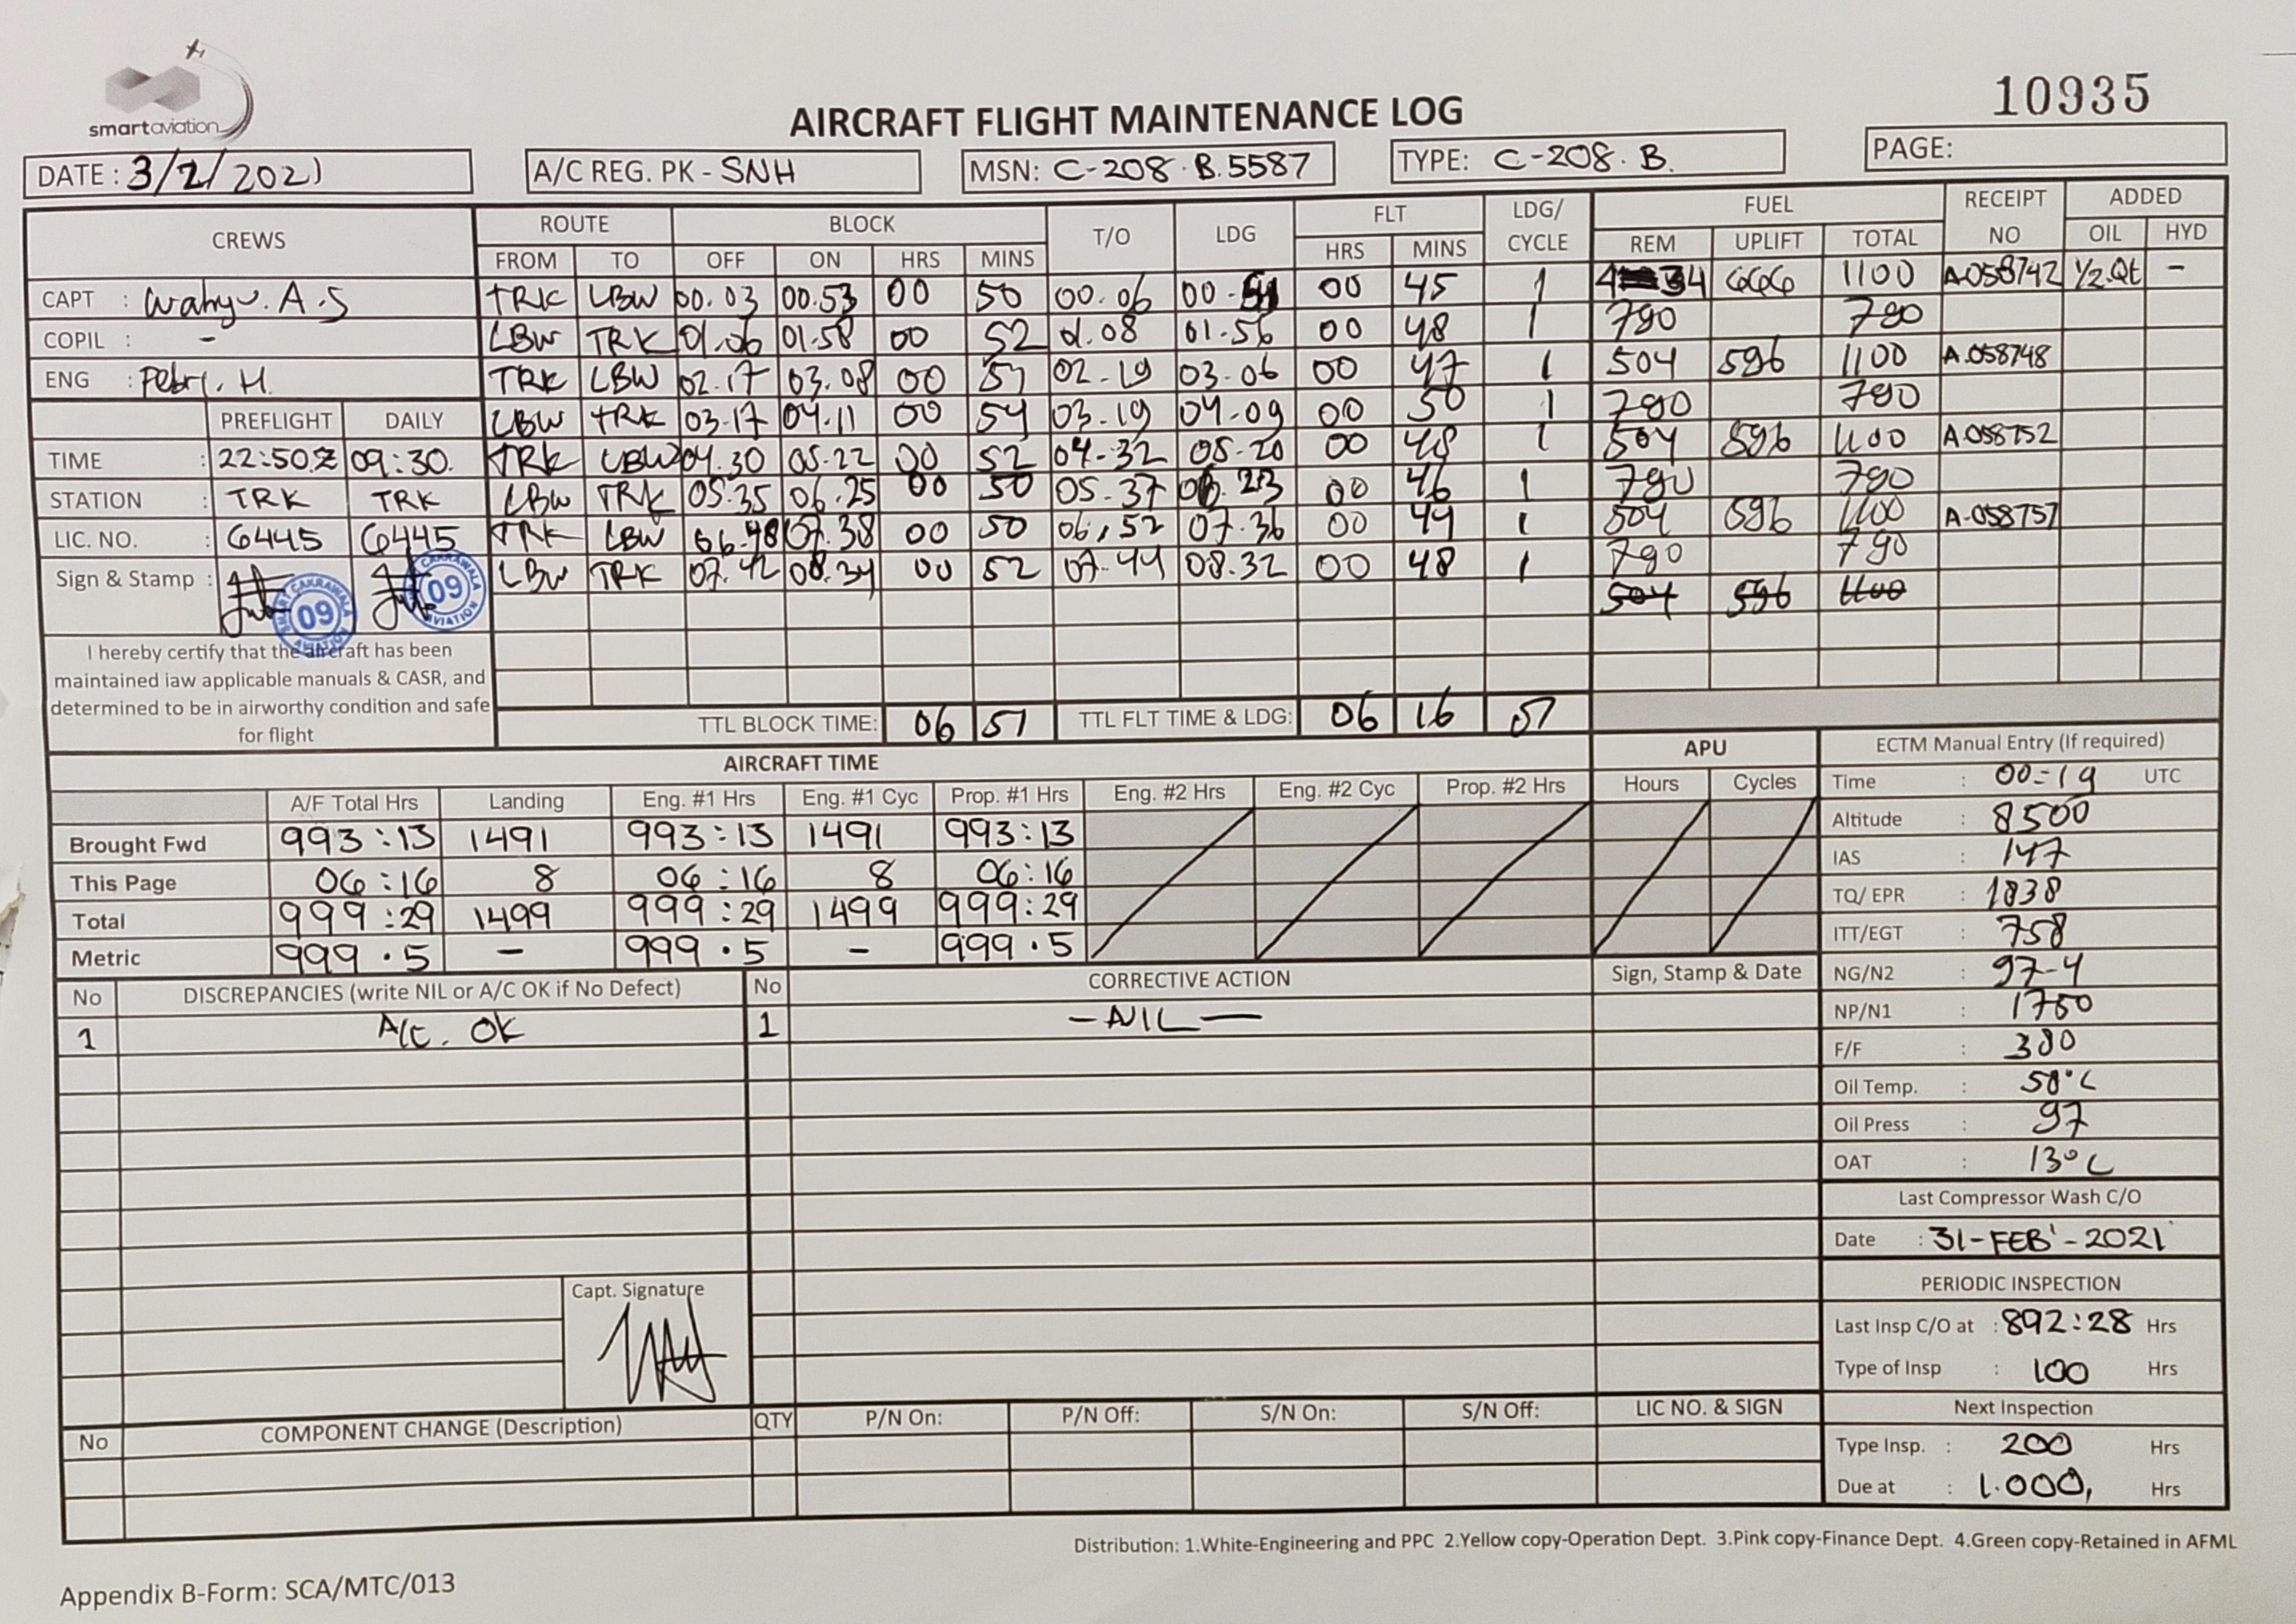 smartaviation
10935
AIRCRAFT FLIGHT MAINTENANCE LOG
DATE : 3/2/2021 A/C REG. PK - SNH MSN: C-208.B.5587 TYPE: C-208.B. PAGE:
CREWS ROUTE BLOCK T/O LDG FLT LDG/ CYCLE FUEL RECEIPT NO ADDED
FROM TO OFF ON HRS MINS HRS MINS REM UPLIFT TOTAL OIL HYD
CAPT : Wahyu. A.S TRK LBW 00.03 00.53 00 50 00.06 00.51 00 45 1 434 666 1100 A.058742 1/2.Qt -
COPIL : - LBW TRK 01.06 01.58 00 52 01.08 01.56 00 48 1 790 790
ENG : Pebri. H. TRK LBW 02.17 03.08 00 51 02-19 03.06 00 47 1 504 596 1100 A.058748
PREFLIGHT DAILY LBW TRK 03.17 04.11 00 54 03.19 04.09 00 50 1 790 790
TIME : 22:50.Z 09:30. TRK LBW 04.30 05.22 00 52 04-32 05-20 00 48 1 504 596 1100 A.058752
STATION : TRK TRK LBW TRK 05.35 06.25 00 50 05.37 06.23 00 46 1 790 790
LIC. NO. : 6445 6445 TRK LBW 06.48 07.38 00 50 06.52 07.36 00 44 1 504 596 1100 A.058757
Sign & Stamp : LBW TRK 07.42 08.34 00 52 07.44 08.32 00 48 1 790 790
09 09
504 596 1100
I hereby certify that the aircraft has been
maintained iaw applicable manuals & CASR, and
determined to be in airworthy condition and safe
for flight
TTL BLOCK TIME: 06 51 TTL FLT TIME & LDG: 06 16
AIRCRAFT TIME APU ECTM Manual Entry (If required)
A/F Total Hrs Landing Eng. #1 Hrs Eng. #1 Cyc Prop. #1 Hrs Eng. #2 Hrs Eng. #2 Cyc Prop. #2 Hrs Hours Cycles
Brought Fwd 993:13 1491 993:13 1491 993:13
This Page 06:16 8 06:16 8 06:16
Total 999:29 1499 999:29 1499 999:29
Metric 999.5 - 999.5 - 999.5
Time : 00=19 UTC
Altitude : 8500
IAS : 147
TQ/ EPR : 1838
ITT/EGT : 758
NG/N2 : 97-4
NP/N1 : 1750
F/F : 380
Oil Temp. : 50°C
Oil Press : 97
OAT : 13°C
No DISCREPANCIES (write NIL or A/C OK if No Defect) No CORRECTIVE ACTION Sign, Stamp & Date
1 A/C. OK 1 -NIL-
Last Compressor Wash C/O
Date : 31-FEB'-2021
PERIODIC INSPECTION
Last Insp C/O at : 892:28 Hrs
Type of Insp : 100 Hrs
Next Inspection
Type Insp. : 200 Hrs
Due at : 1.000, Hrs
Capt. Signature
No COMPONENT CHANGE (Description) QTY P/N On: P/N Off: S/N On: S/N Off: LIC NO. & SIGN
Distribution: 1.White-Engineering and PPC 2.Yellow copy-Operation Dept. 3.Pink copy-Finance Dept. 4.Green copy-Retained in AFML
Appendix B-Form: SCA/MTC/013